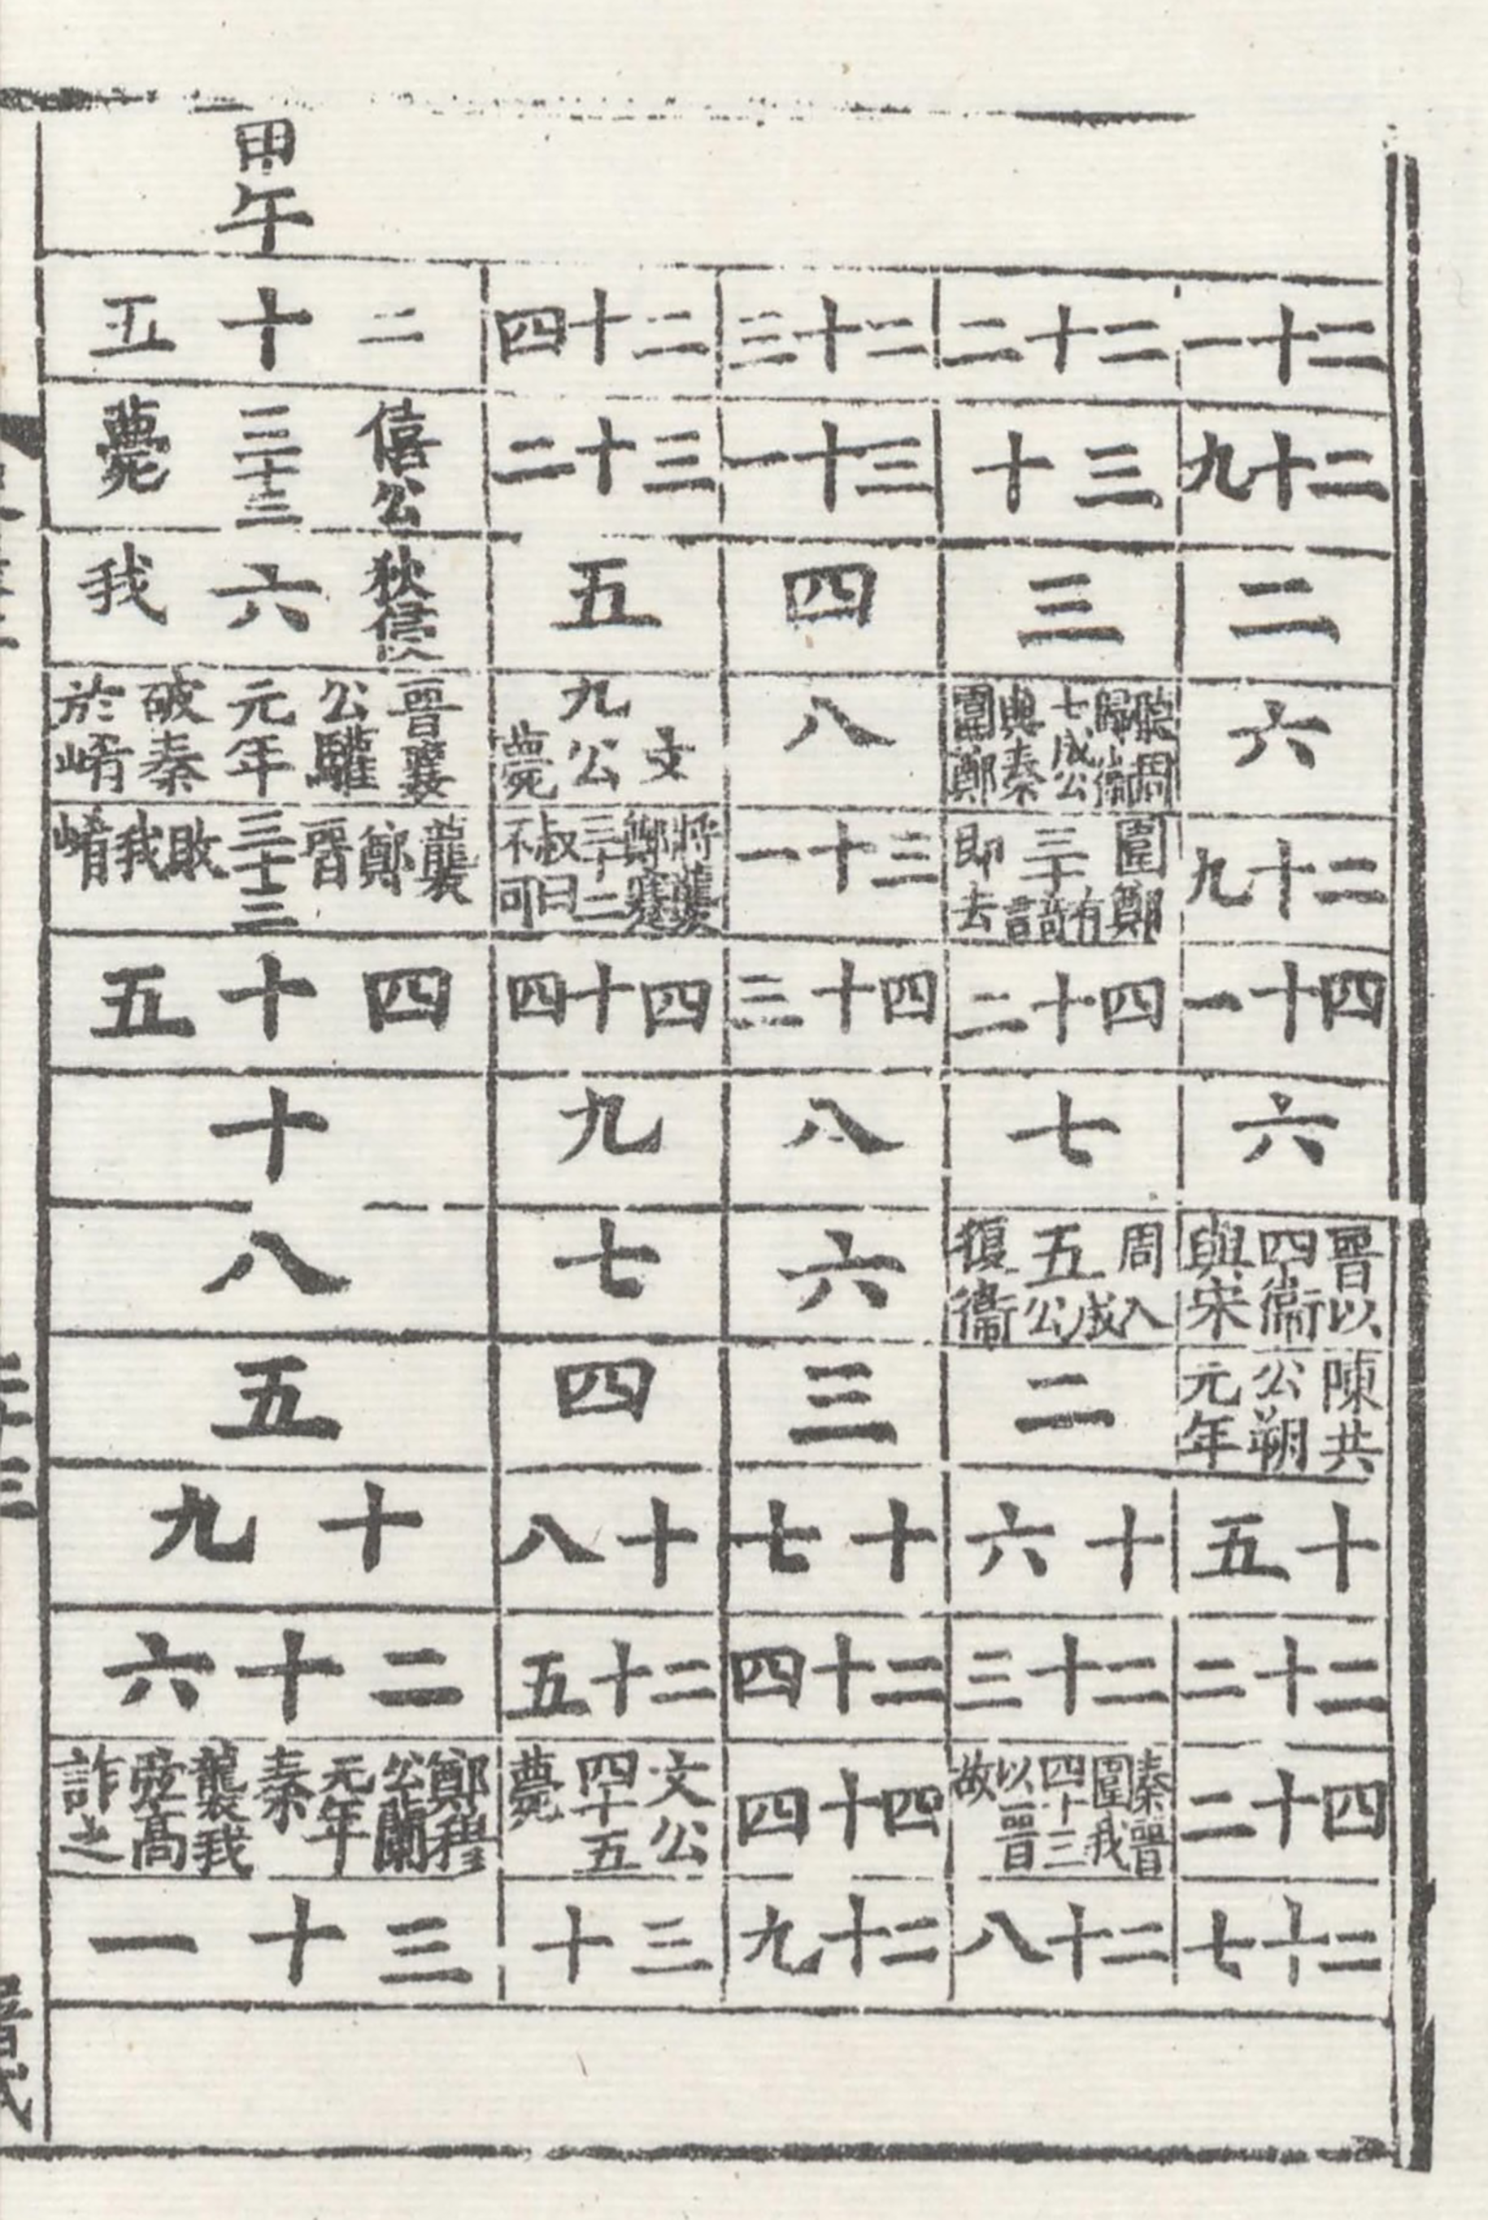 二十一
二十九
二
六
二十九
四十一
六
晉以四衞與宋
陳共公朔元年
十五
二十二
四十二
二十七
二十二
三十
三
聽周歸衞七成公與秦圍鄭
圍鄭有三十奇言即去
四十二
七
周入成五公復衞
二
十六
二十三
秦晉圍我四十三以晉故
二十八
二十三
三十一
四
八
三十一
四十三
八
六
三
十七
二十四
四十四
二十九
二十四
三十二
五
文九公薨
將襲鄭蹇三十二叔曰不可
四十四
九
七
四
十八
二十五
文公四十五薨
三十
甲午
二十五
僖公三十三薨
狄侵六我
晉襄公驩元年破秦於崤
襲鄭晉三十三敗我崤
四十五
十
八
五
十九
二十六
鄭穆公蘭元年秦襲我弦高詐之
三十一